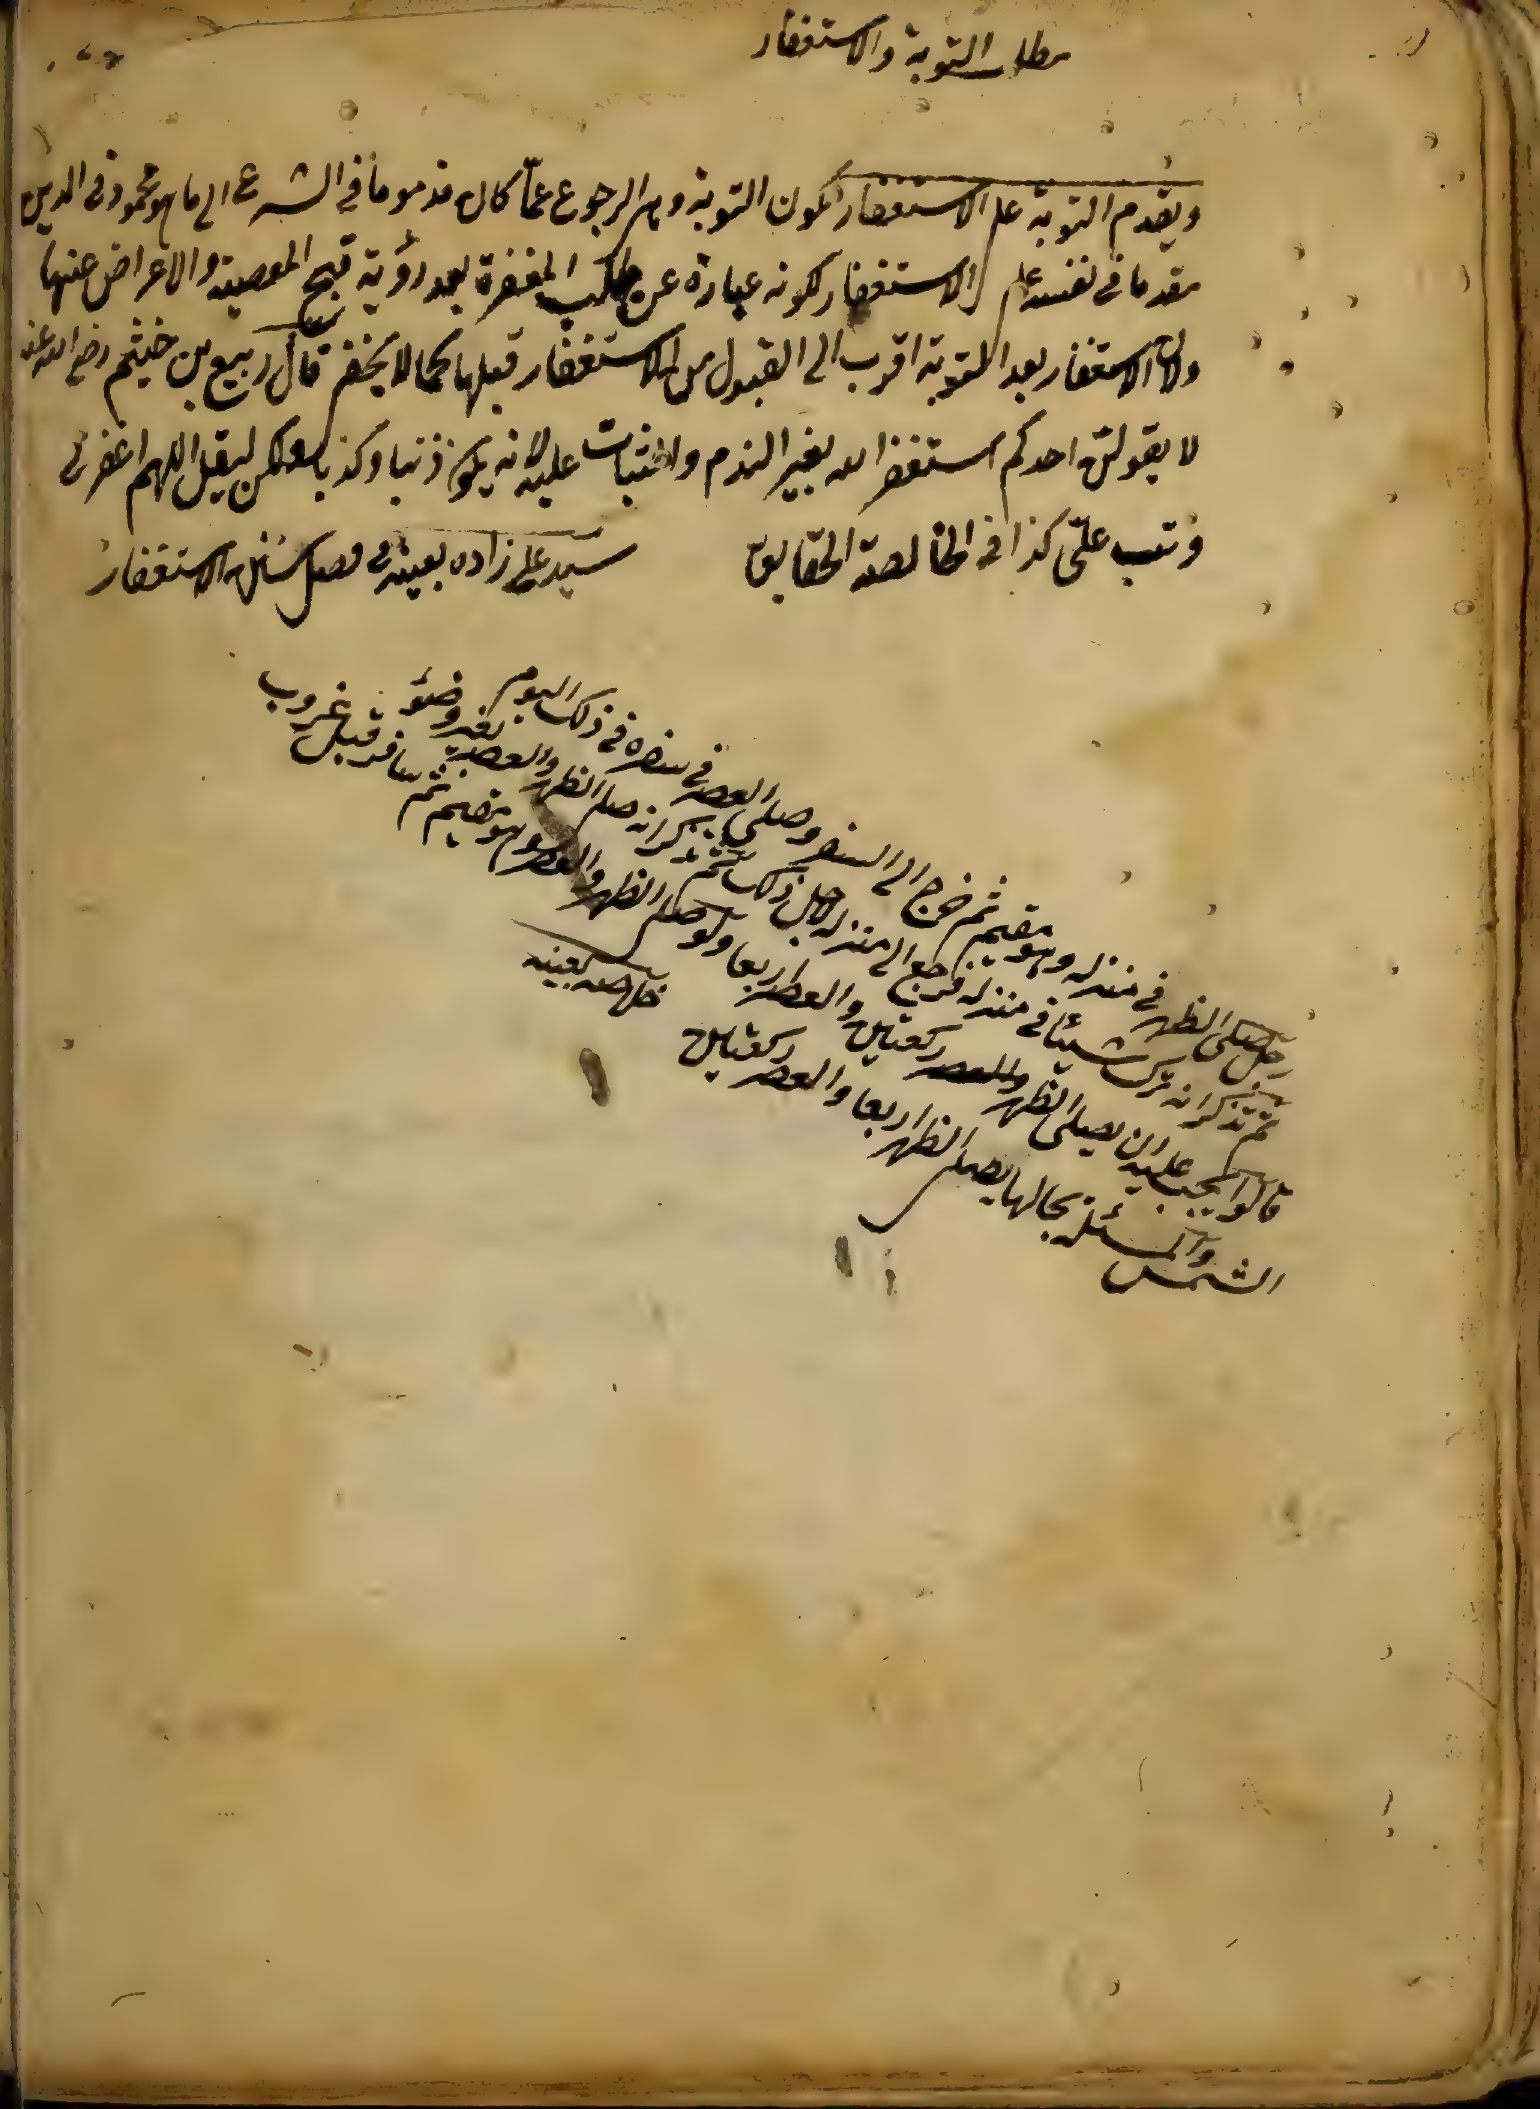 مطلب التوبة والاستغفار
ويقدم التوبة على الاستغفار لكون التوبة وهى الرجوع عمّا كان مذموما فى الشرع الى ما هو محمود فى الدين
مقدما فى نفسه على الاستغفار لكونه عبارة عن طلب المغفرة بعد رؤية قبح المعصية والاعراض عنها
ولان الاستغفار بعد التوبة اقرب الى القبول من الاستغفار قبلها كما لا يخفى قال ربيع بن خيثم رضى الله عنه
لا يقولنّ احدكم استغفر الله بغير الندم والثبات عليه لانه يكون ذنبا وكذبا ولكن ليقل اللهم اغفر لى
وتب علىّ كذا فى الخالصة الحقايق سيد على زاده بعينه فى فصل سنن الاستغفار
رجل صلى الظهر فى منزله وهو مقيم ثم خرج الى السفر وصلى العصر فى سفره فى ذلك اليوم
ثم تذكر انه ترك شيئا فى منزله فرجع الى منزله لاجل ذلك ثم تذكر انه صلى الظهر والعصر بغير وضوء
قالوا يجب عليه ان يصلى الظهر ركعتين والعصر اربعا ولو صلى الظهر والعصر وهو مقيم ثم سافر قبل غروب
الشمس والمسئلة بحالها يصلى الظهر اربعا والعصر ركعتين
خلاصه بعينه